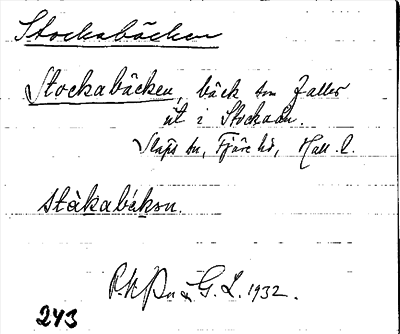 Stockabäcken
Stockabäcken, bäck som faller
ut i Stockaån.
Släps sn, Fjäre hd, Hall. l.
ståkabäkən.
G. L. 1932.
243